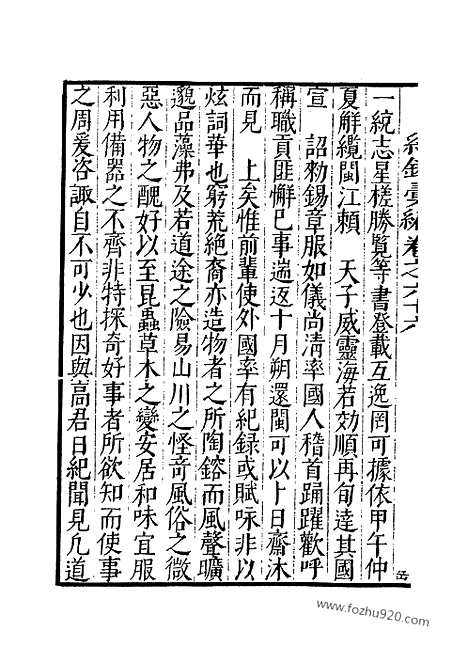 紀錄彙編卷之六十六
一統志星槎勝覽等書登載互逸罔可據依甲午仲
夏觧纜閩江賴　天子威靈海若効順再旬達其國
宣　詔勑錫章服如儀尚淸率國人稽首踊躍歡呼
稱職貢匪懈已事遄返十月朔還閩可以卜日齋沐
而見　上矣惟前輩使外國率有紀録或賦咏非以
炫詞華也窮荒絶裔亦造物者之所陶鎔而風聲曠
邈品藻弗及若道途之險易山川之怪竒風俗之微
惡人物之醜好以至昆蟲草木之變安居和味宜服
利用備器之不齊非特探奇好事者所欲知而使事
之周爰咨諏自不可少也因與高君日紀聞見几道
岳
www.fozhu920.com